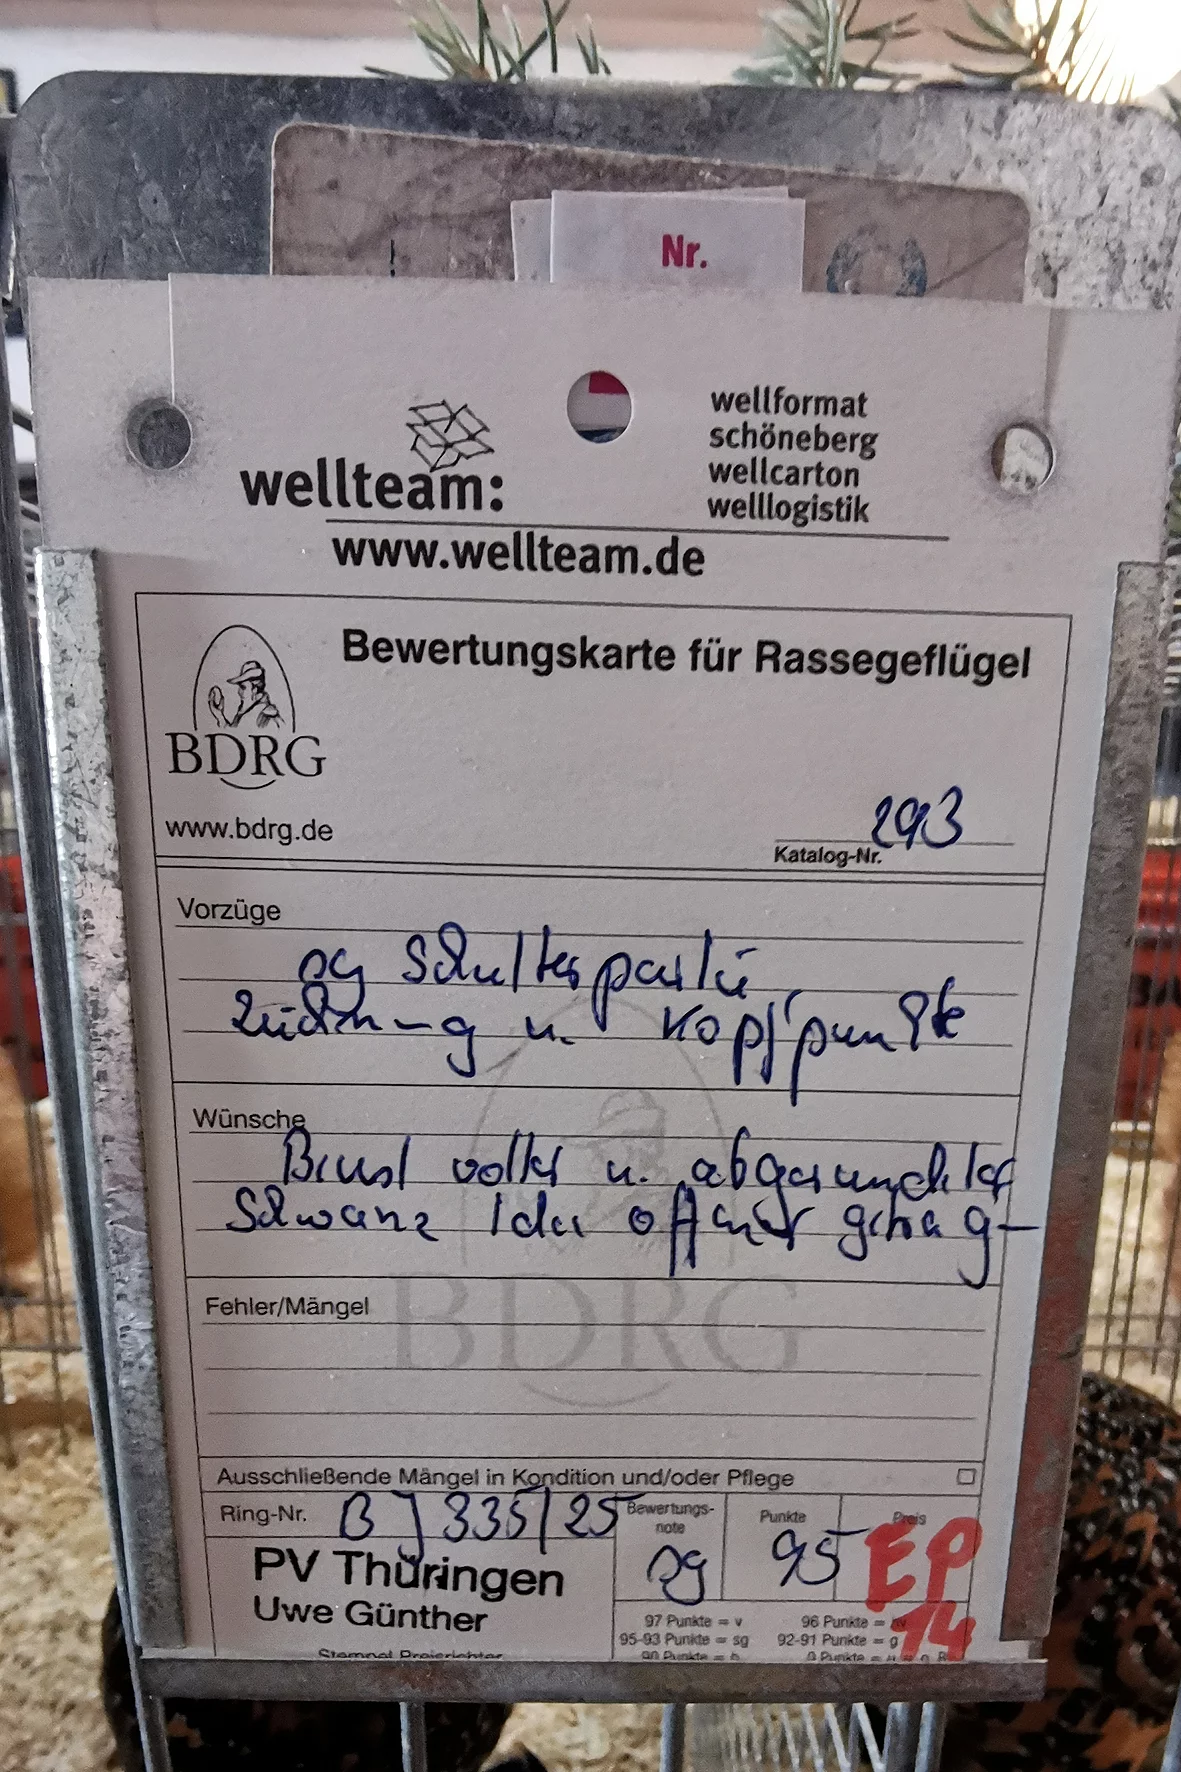 Nr.
wellteam:
wellformat
schöneberg
wellcarton
welllogistik
www.wellteam.de
Bewertungskarte für Rassegeflügel
BDRG
www.bdrg.de
293
Katalog-Nr.
Vorzüge
sg Schulterpartie,
Zeichnung u. Kopfpunkte
Wünsche
Brust voller u. abgerundeter
Schwanz offener getrag
BDRG
Fehler/Mängel
Ausschließende Mängel in Kondition und/oder Pflege
Ring-Nr. B J 335/25
Bewertungs-
note
sg
Punkte
95
Preis
EP
14
PV Thüringen
Uwe Günther
Stempel Preisrichter
97 Punkte = v 96 Punkte = hv
95-93 Punkte = sg 92-91 Punkte = g
90 Punkte = b 0 Punkte =